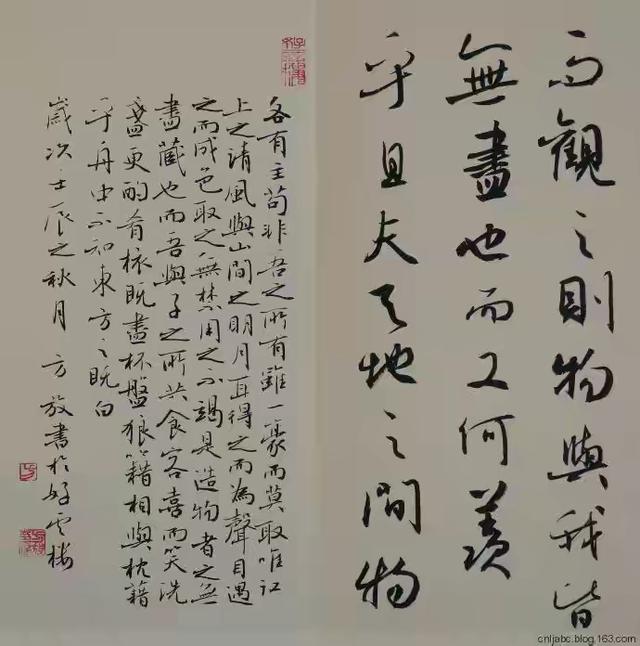 而觀之則物與我皆
無盡也而又何羨
乎且夫天地之間物
各有主苟非吾之所有雖一毫而莫取唯江
上之清風與山間之明月耳得之而為聲目遇
之而成色取之無禁用之不竭是造物者之無
盡藏也而吾與子之所共食客喜而笑洗
盞更酌肴核既盡杯盤狼籍相與枕籍
乎舟中不知東方之既白
歲次壬辰之秋月 方放書於好雲樓
cnljabc.blog.163.com